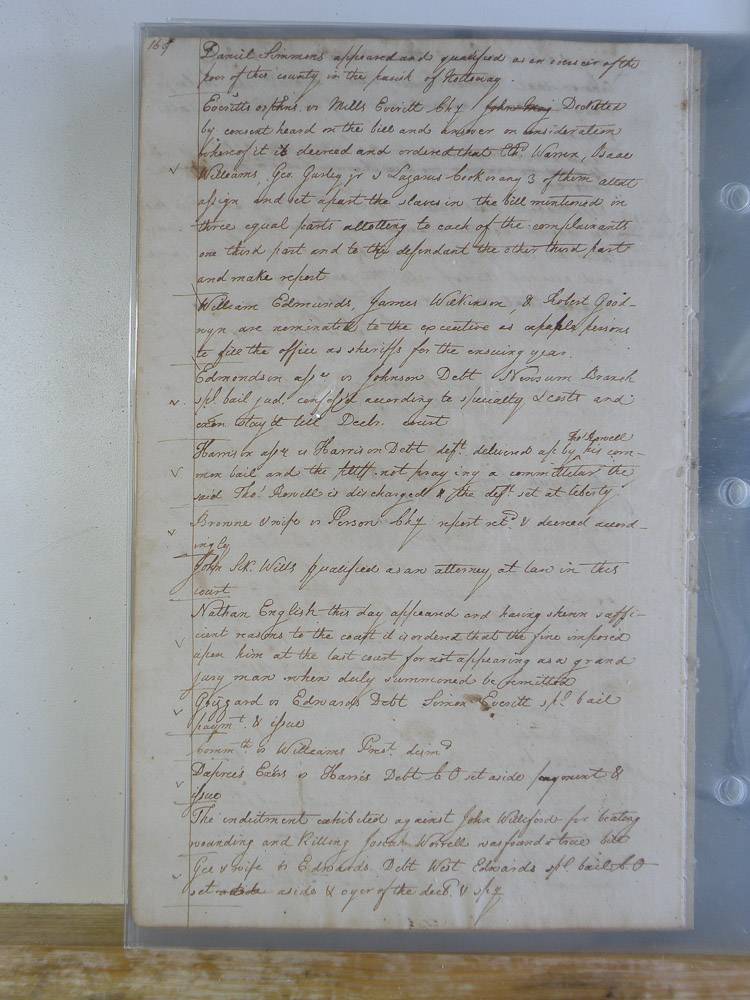 Daniel Simmons appeared and qualified as an overseer of the
poor of this county in the parish of Nottoway.
Everitts orphns. vs Mills Everitt Chy Docketed
by consent heard on the bill and answer on consideration
whereof it is decreed and ordered that Warren, Isaac
Williams, Geo. Gurley jr & Lazarus Cook or any 3 of them allot
assign and set apart the slaves in the bill mentioned in
three equal parts allotting to each of the complainants
one third part and to the defendant the other third part
and make report
William Edmunds, James Wilkinson, & Robert Good-
wyn are nominated to the executive as capable persons
to fill the office as sheriffs for the ensuing year.
Edmondson asse vs Johnson Debt Newsum Branch
spl bail jud. confess'd according to specialty & costs and
exon stay'd till Decbr. court
Thos Rowell
Harrison asse vs Harrison Debt deft. delivered up by his com-
mon bail and the pltff not praying a committitur the
said Thos. Rowell is discharged & the deft set at liberty
Browne & wife vs Person Chy report retd. & decreed accord-
ingly
John Wills qualified as an attorney at law in this
court
Nathan English this day appeared and having shewn suffi-
cient reasons to the court it is ordered that the fine imposed
upon him at the last court for not appearing as a grand
jury man when duly summoned be remitted
Grizzard vs Edwards Debt Simon Everitt spl. bail
paymt. & issue
Commth vs Williams Prest. dismd
Dupree's Exors vs Harris Debt C O set aside payment &
issue
The indictment exhibited against John Williford for beating
wounding and Killing Josiah Worrell was found a true bill
Gee & wife vs Edwards Debt West Edwards spl. bail C O
set aside & oyer of the decl. & spy